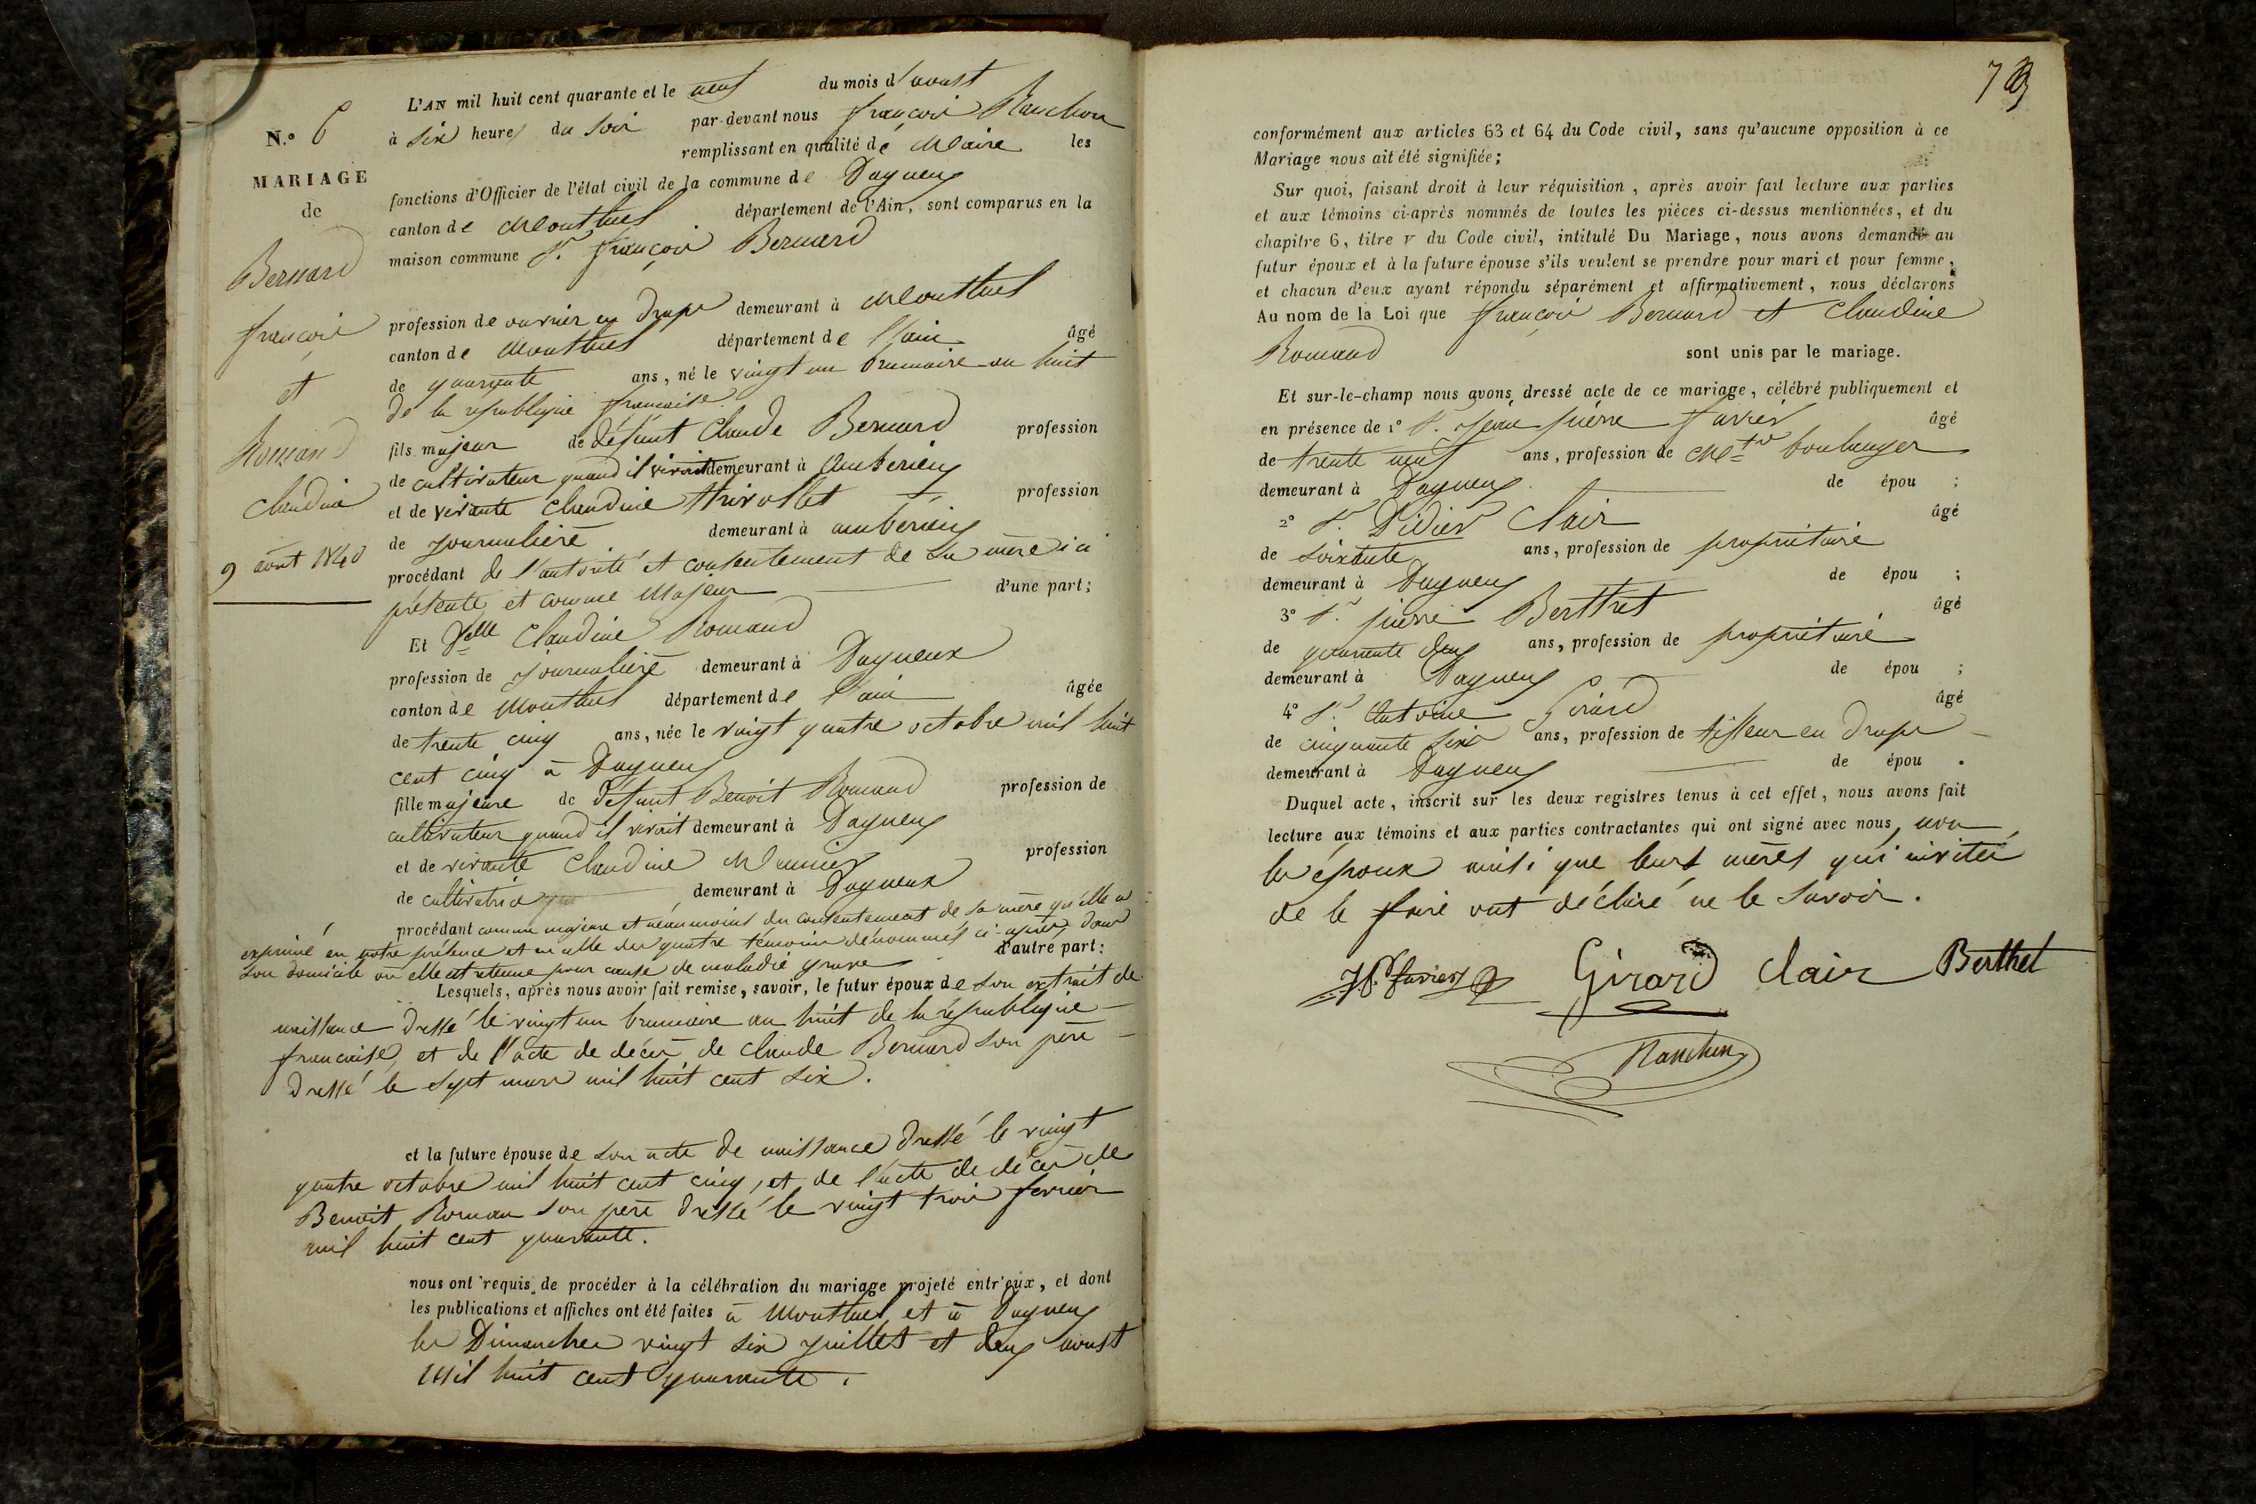 N.o 6
MARIAGE
de
Bernard
françois
et
Romand
Claudine
9 aout 1840
L'AN mil huit cent quarante et le neuf du mois d'aoust
à six heures du soir par-devant nous françois Ranchon
remplissant en qualité de Maire les
fonctions d'Officier de l'état civil de la commune de Dagneux
canton de Montluel département de l'Ain, sont comparus en la
maison commune Sr. françois Bernard
profession de ouvrier en draps demeurant à Montluel
canton de Montluel département de l'ain âgé
de quarante ans, né le vingt un brumaire an huit
de la république française.
fils majeur de défunt Claude Bernard profession
de cultivateur quand il vivait demeurant à Ambérieux
et de vivante Claudine Thivollet profession
de journalière demeurant à ambérieux
procédant de l'autorité et consentement de sa mère ici
présente, et comme Majeur d'une part;
Et Delle Claudine Romand
profession de journalière demeurant à Dagneux
canton de Montluel département de l'ain âgée
de trente cinq ans, née le vingt quatre octobre mil huit
cent cinq à Dagneux
fille majeure de défunt Benoit Romand profession de
cultivateur quand il vivait demeurant à Dagneux
et de vivante Claudine Meunier profession
de cultivatrice demeurant à Dagneux
procédant comme majeure et néanmoins du consentement de sa mère qu'elle a
exprimé en notre présence et en celle des quatre témoins dénommés ci-après, dans
son domicile où elle est retenue pour cause de maladie grave d'autre part:
Lesquels, après nous avoir fait remise, savoir, le futur époux de son extrait de
naissance dressé le vingt un brumaire an huit de la république
française, et de l'acte de décès de Claude Bernard son père
dressé le sept mars mil huit cent six.
et la future épouse de son acte de naissance dressé le vingt
quatre octobre mil huit cent cinq, et de l'acte de décès de
Benoit Roman son père dressé le vingt trois fevrier
mil huit cent quarante.
nous ont requis de procéder à la célébration du mariage projeté entr'eux, et dont
les publications et affiches ont été faites à Montluel et à Dagneux
les Dimanches vingt six juillet et deux aoust
Mil huit cent quarante.
conformément aux articles 63 et 64 du Code civil, sans qu'aucune opposition à ce
Mariage nous ait été signifiée;
Sur quoi, faisant droit à leur réquisition, après avoir fait lecture aux parties
et aux témoins ci-après nommés de toutes les pièces ci-dessus mentionnées, et du
chapitre 6, titre v du Code civil, intitulé Du Mariage, nous avons demandé au
futur époux et à la future épouse s'ils veulent se prendre pour mari et pour femme,
et chacun d'eux ayant répondu séparément et affirmativement, nous déclarons
Au nom de la Loi que françois Bernard et Claudine
Romand sont unis par le mariage.
Et sur-le-champ nous avons dressé acte de ce mariage, célébré publiquement et
en présence de 1o Sr. Jean pierre favier âgé
de trente neuf ans, profession de Me boulanger
demeurant à Dagneux de épou ;
2o Sr. Didier Clair âgé
de soixante ans, profession de propriétaire
demeurant à Dagneux de épou ;
3o Sr. pierre Berthet âgé
de quarante deux ans, profession de propriétaire
demeurant à Dagneux de épou ;
4o Sr. Antoine Girard âgé
de cinquante six ans, profession de tisseur en draps
demeurant à Dagneux de épou .
Duquel acte, inscrit sur les deux registres tenus à cet effet, nous avons fait
lecture aux témoins et aux parties contractantes qui ont signé avec nous, non
les époux ainsi que leurs mères qui invités
de le faire ont déclaré ne le savoir.
JP. favier Girard Clair Berthet
Ranchon